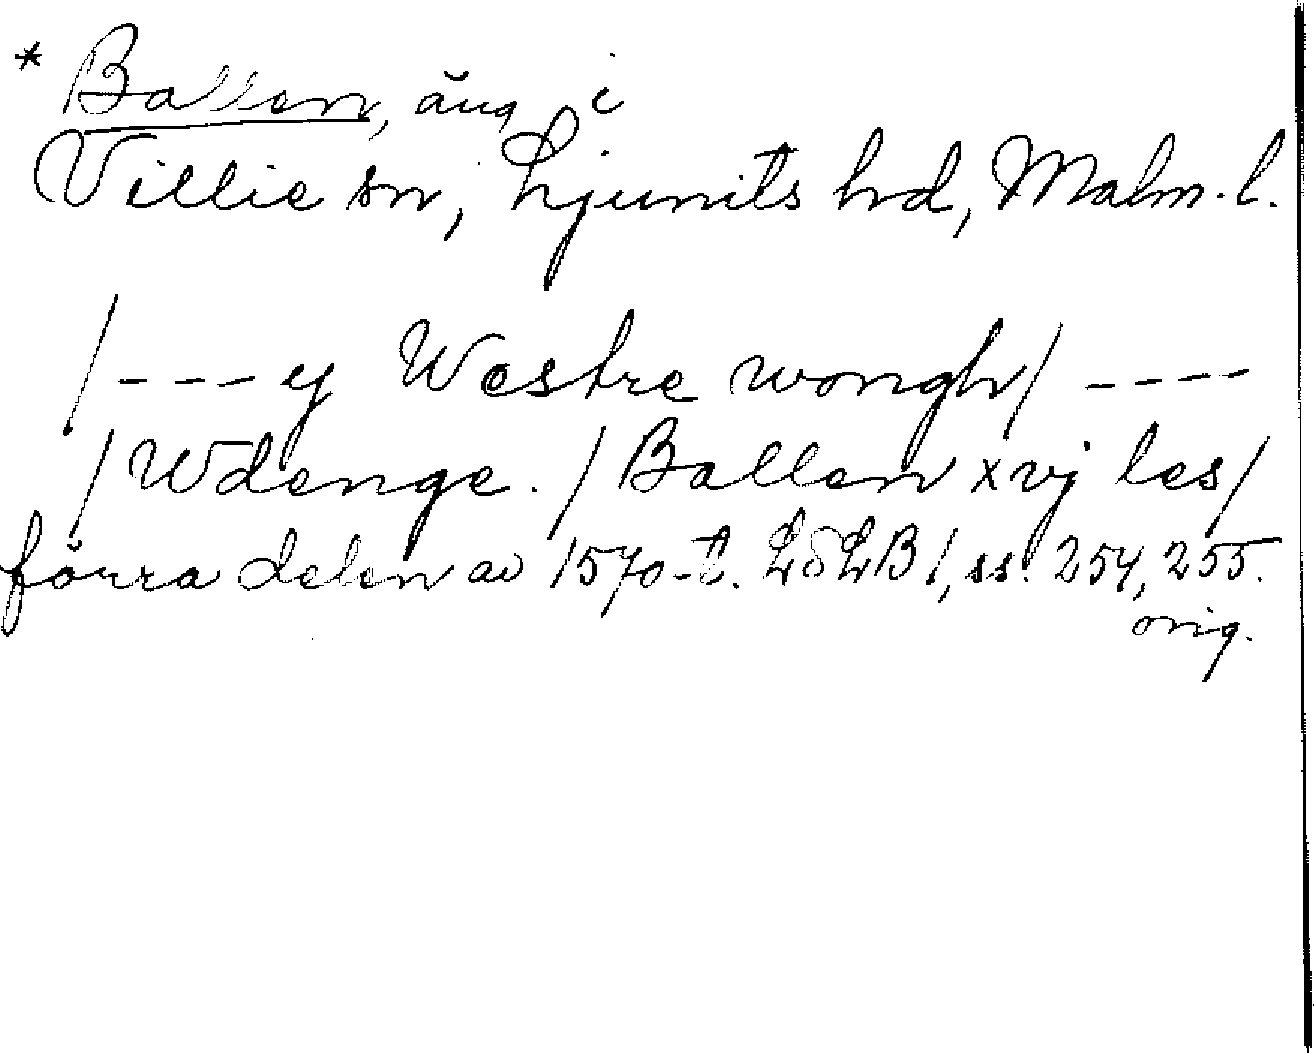 * Ballen, äng i
Villie sn, Ljunits hd, Malm. l.
/---- y Westre wongh/ ----
/ Wdenge. / Ballen xvj les/
förra delen av 1570-t. LSLB 1, ss. 254, 255.
orig.